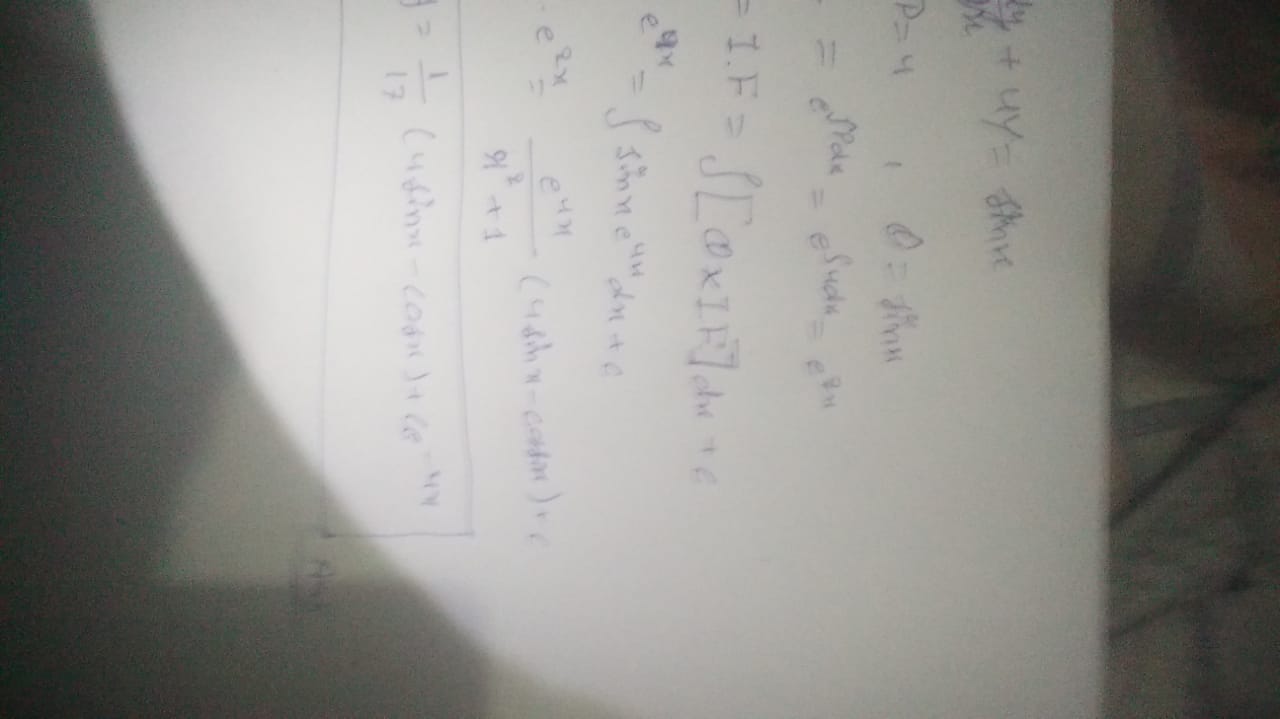 dy/dx + 4y = sinx
P = 4 , Q = sinx
= e^∫Pdx = e^∫4dx = e^2x
= I.F = ∫[Q x I.F] dx + c
e^4x = ∫ sinx e^4x dx + c
. e^2x = e^4x/4^2+1 (4sinx - cosx) + c
y = 1/17 (4sinx - cosx) + ce^-4x
Ans